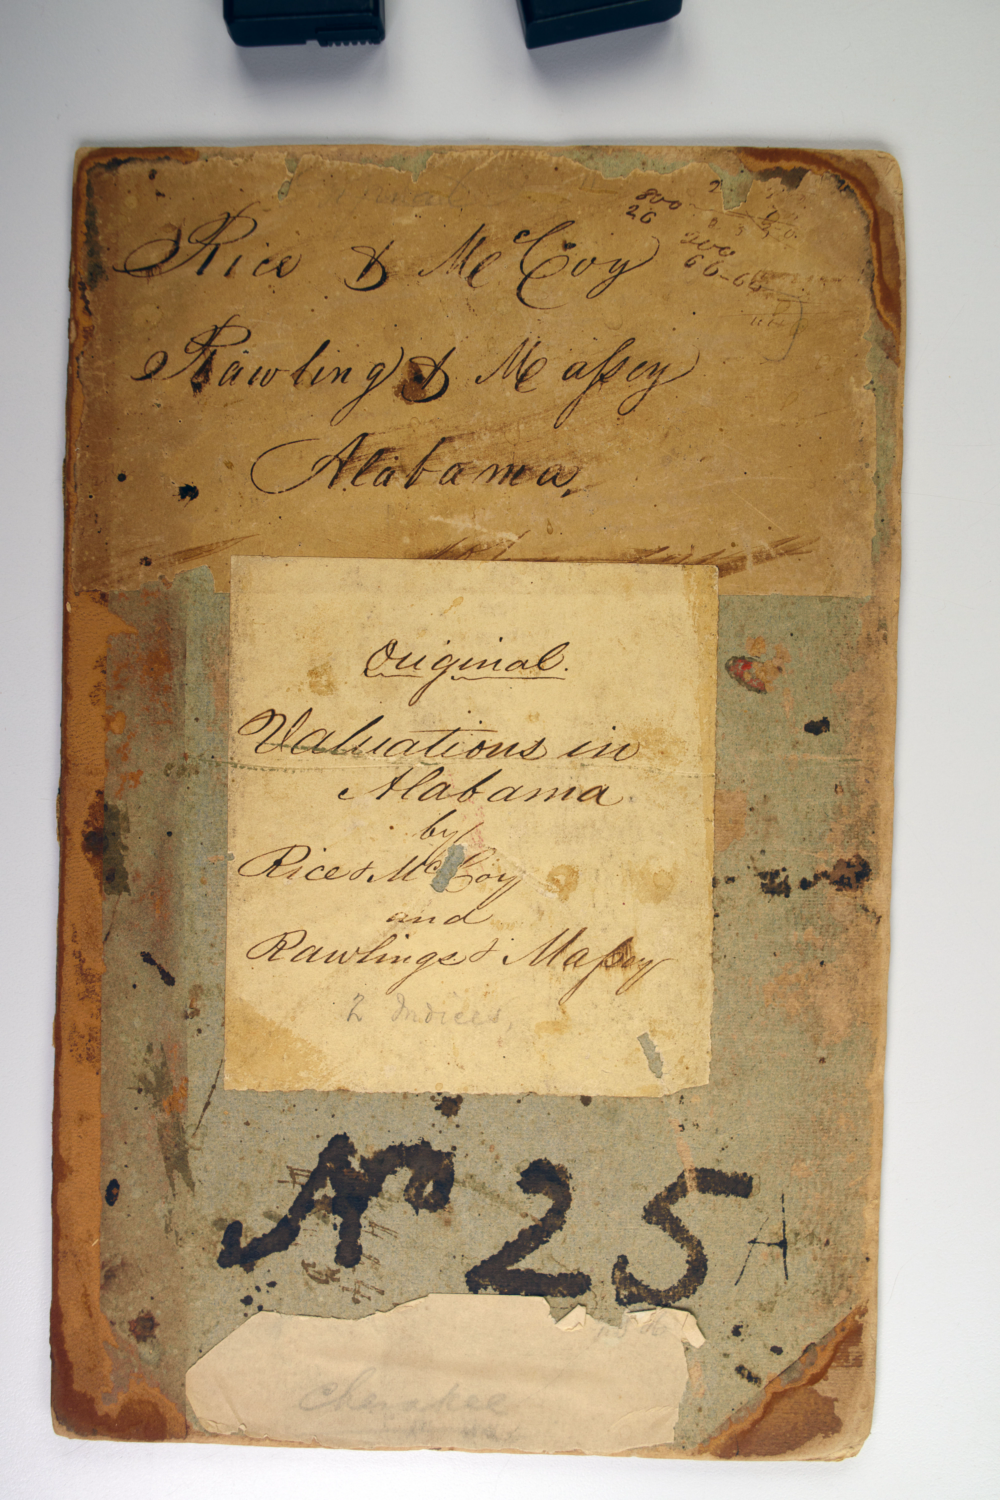 800
20
200
66-66
Rice & McCoy
Rawling & Maſsey
Alabama,
Original.
Valuations in
Alabama
by
Rice & McCoy
and
Rawlings & Maſsey
2 Indices,
No 25
A
Cherokee